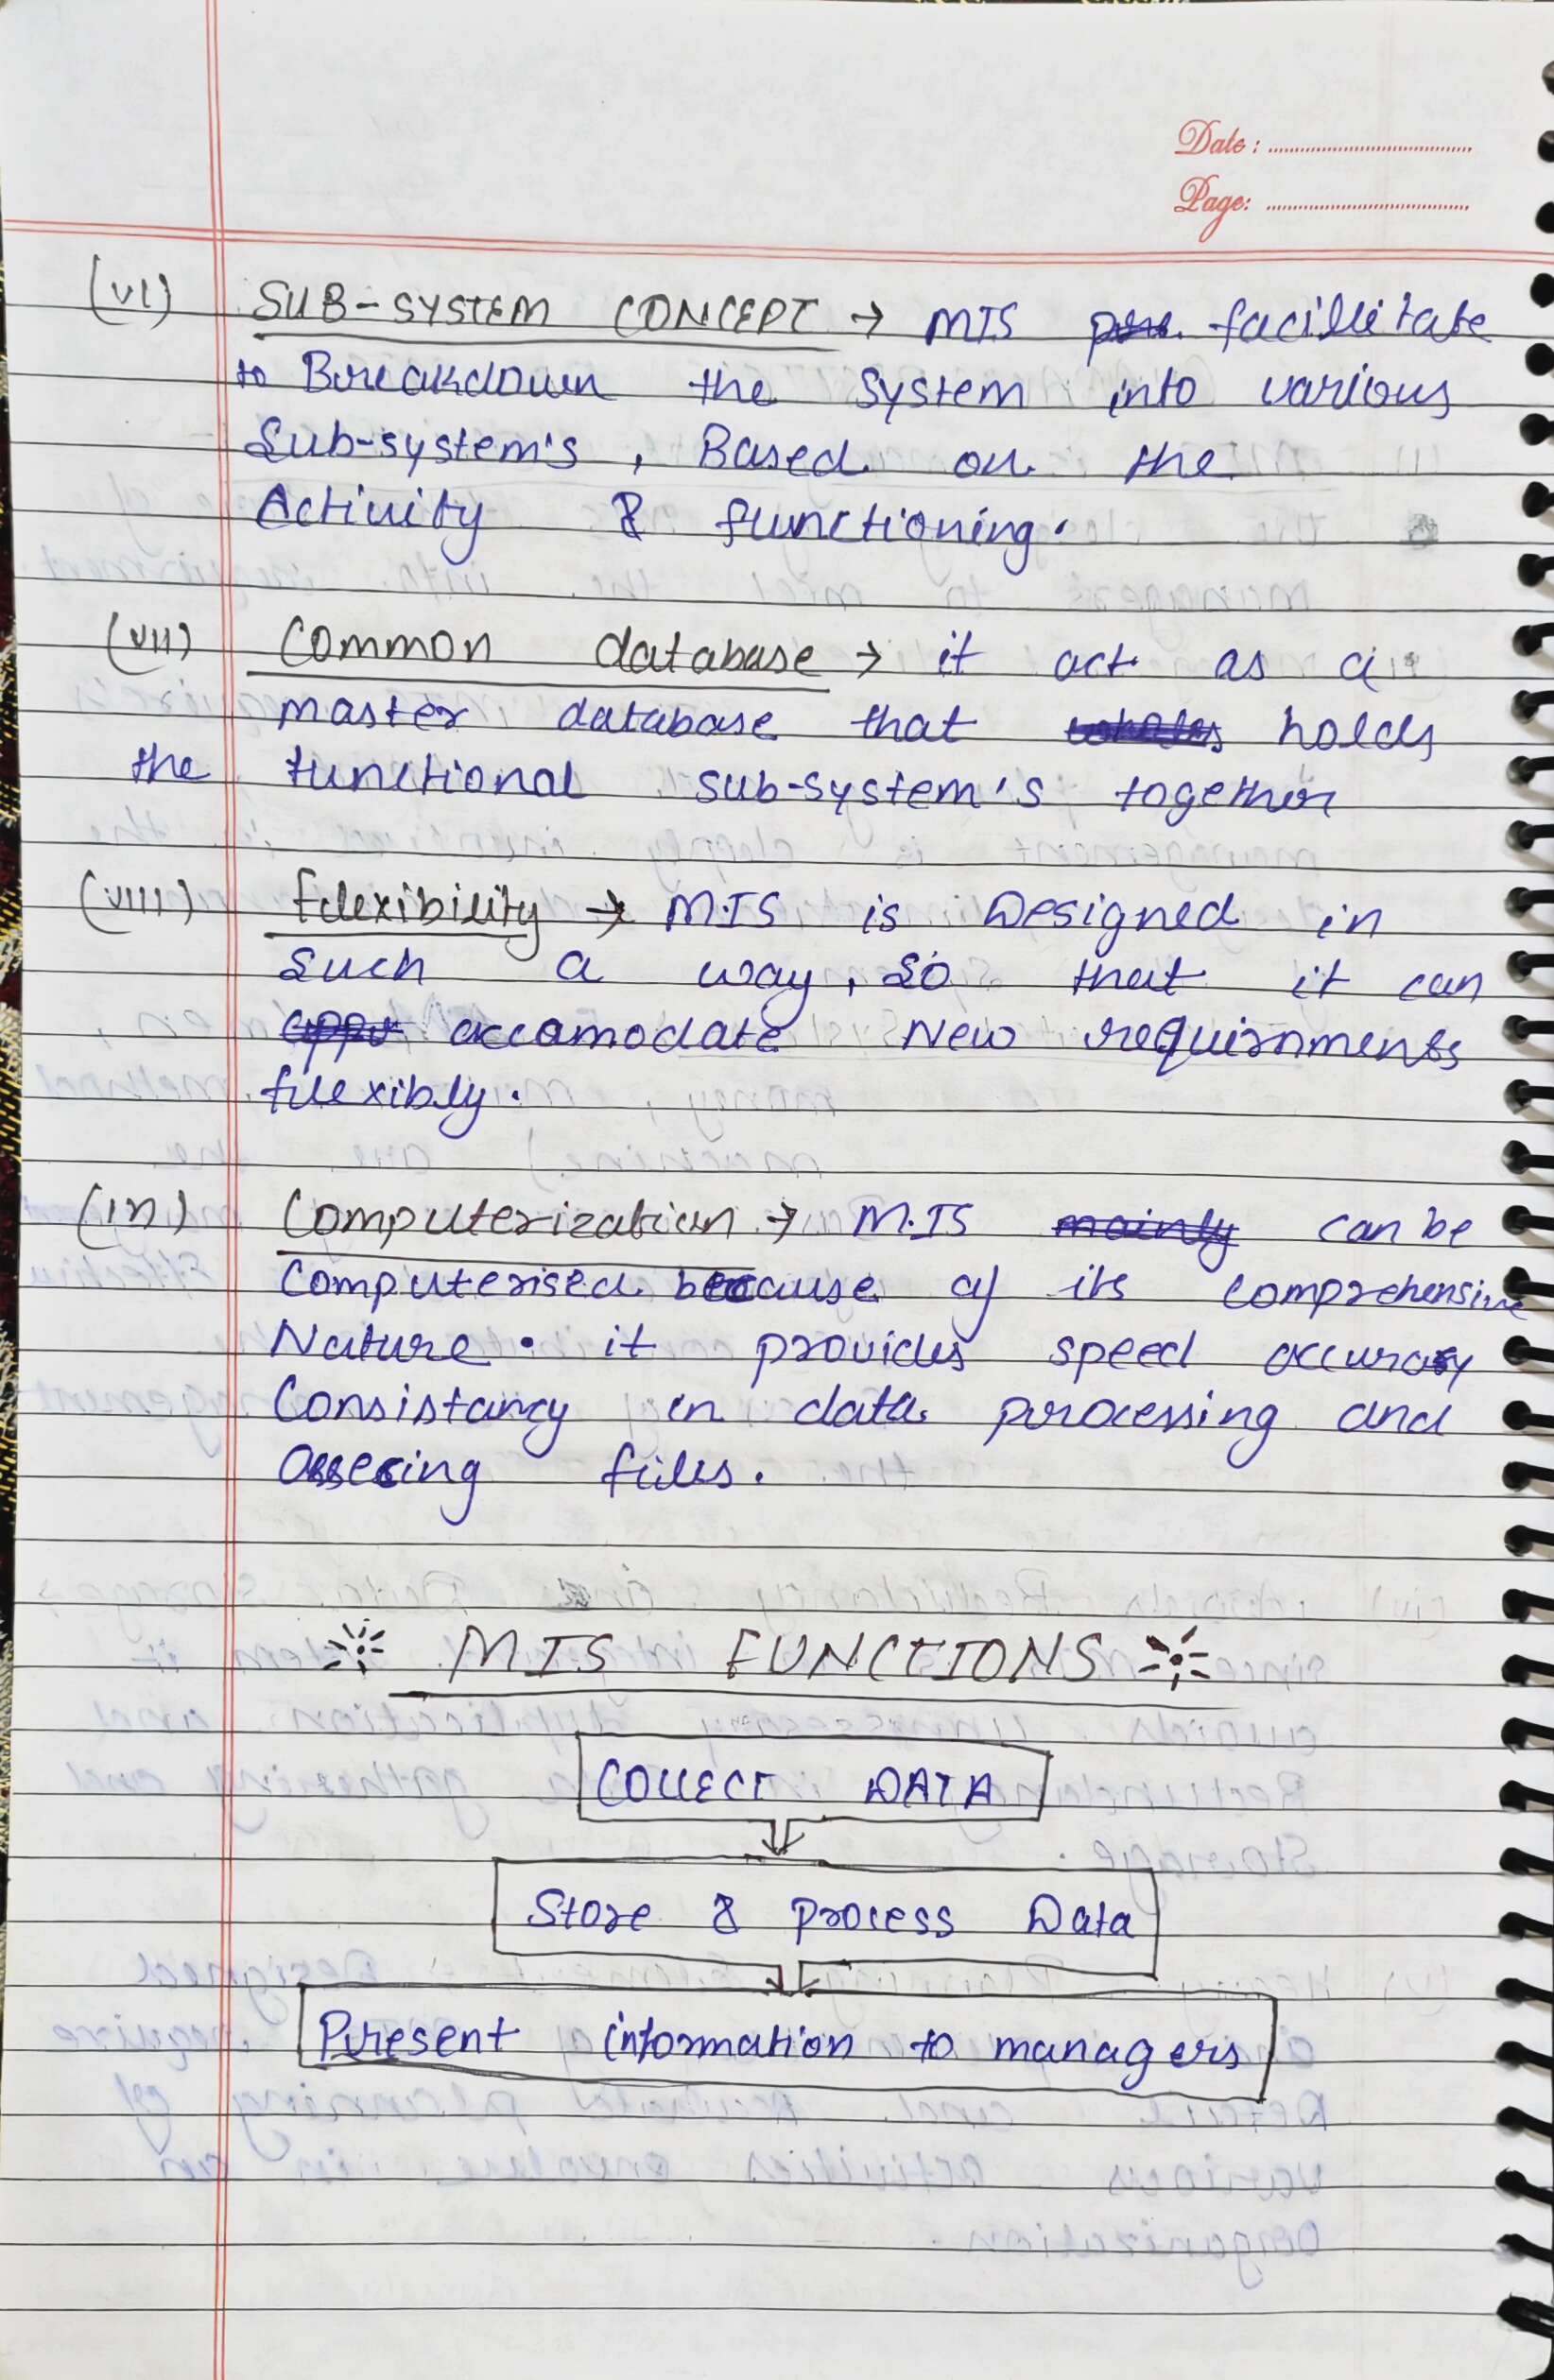 Date :
Page:
(VI) SUB-SYSTEM CONCEPT → MIS facillitate
to Breakdown the system into various
Sub-system's , Based on the
Activity & functioning.
(VII) Common database → it act as a
master database that holds
the functional sub-system's together
(VIII) Flexibility → M.IS is Designed in
such a way, so that it can
accomodate New requirnments
flexibly.
(ix) Computerization → M.IS mainly can be
Computerised because of its comprehensive
Nature. it provides speed accuracy
Consistancy in data processing and
assecing files.
MIS FUNCTIONS
COLLECT DATA
Store & process Data
Present information to managers